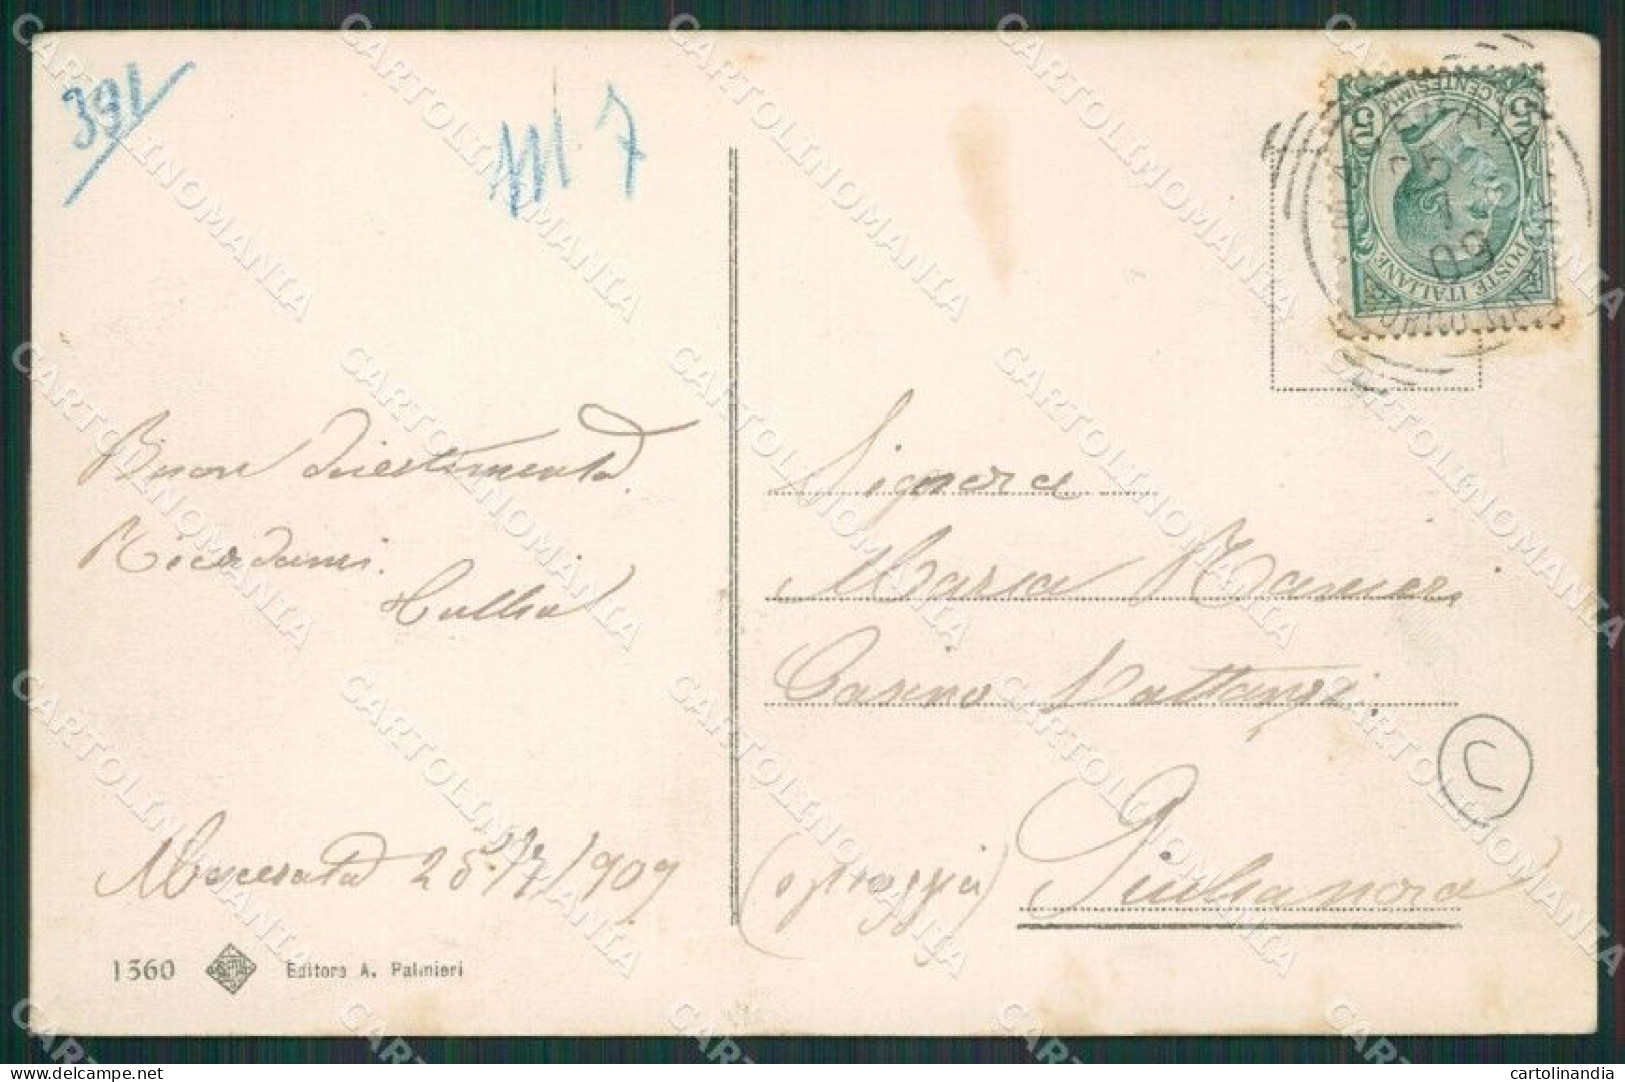 391
7
Buon divertimento.
Ricordami.
Tullia
Macerata 25/7/1909
1360 Editore A. Palmieri
5 CENTESIMI 5
POSTE ITALIANE
MACERATA
25 7 09
Signora
Maria
Casino
(spiaggia) Giulianova
C
CARTOLINOMANIA
delcampe.net
cartolinandia